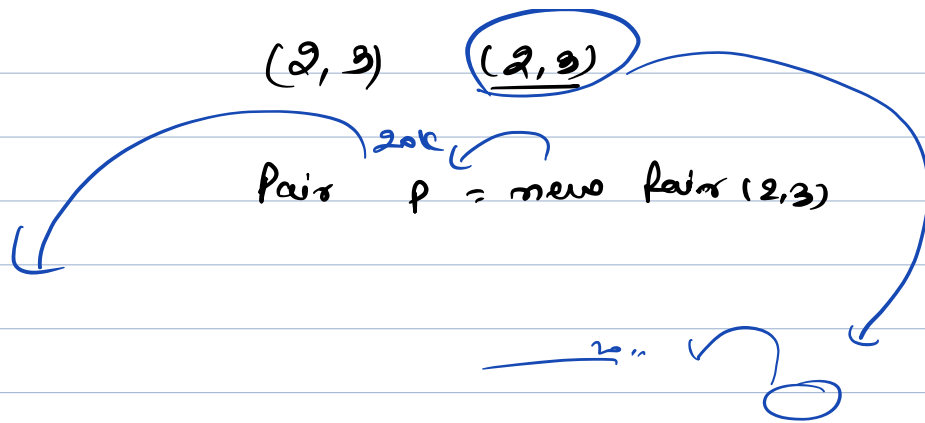 (2, 3) (2, 3)
20k
Pair p = new Pair (2,3)